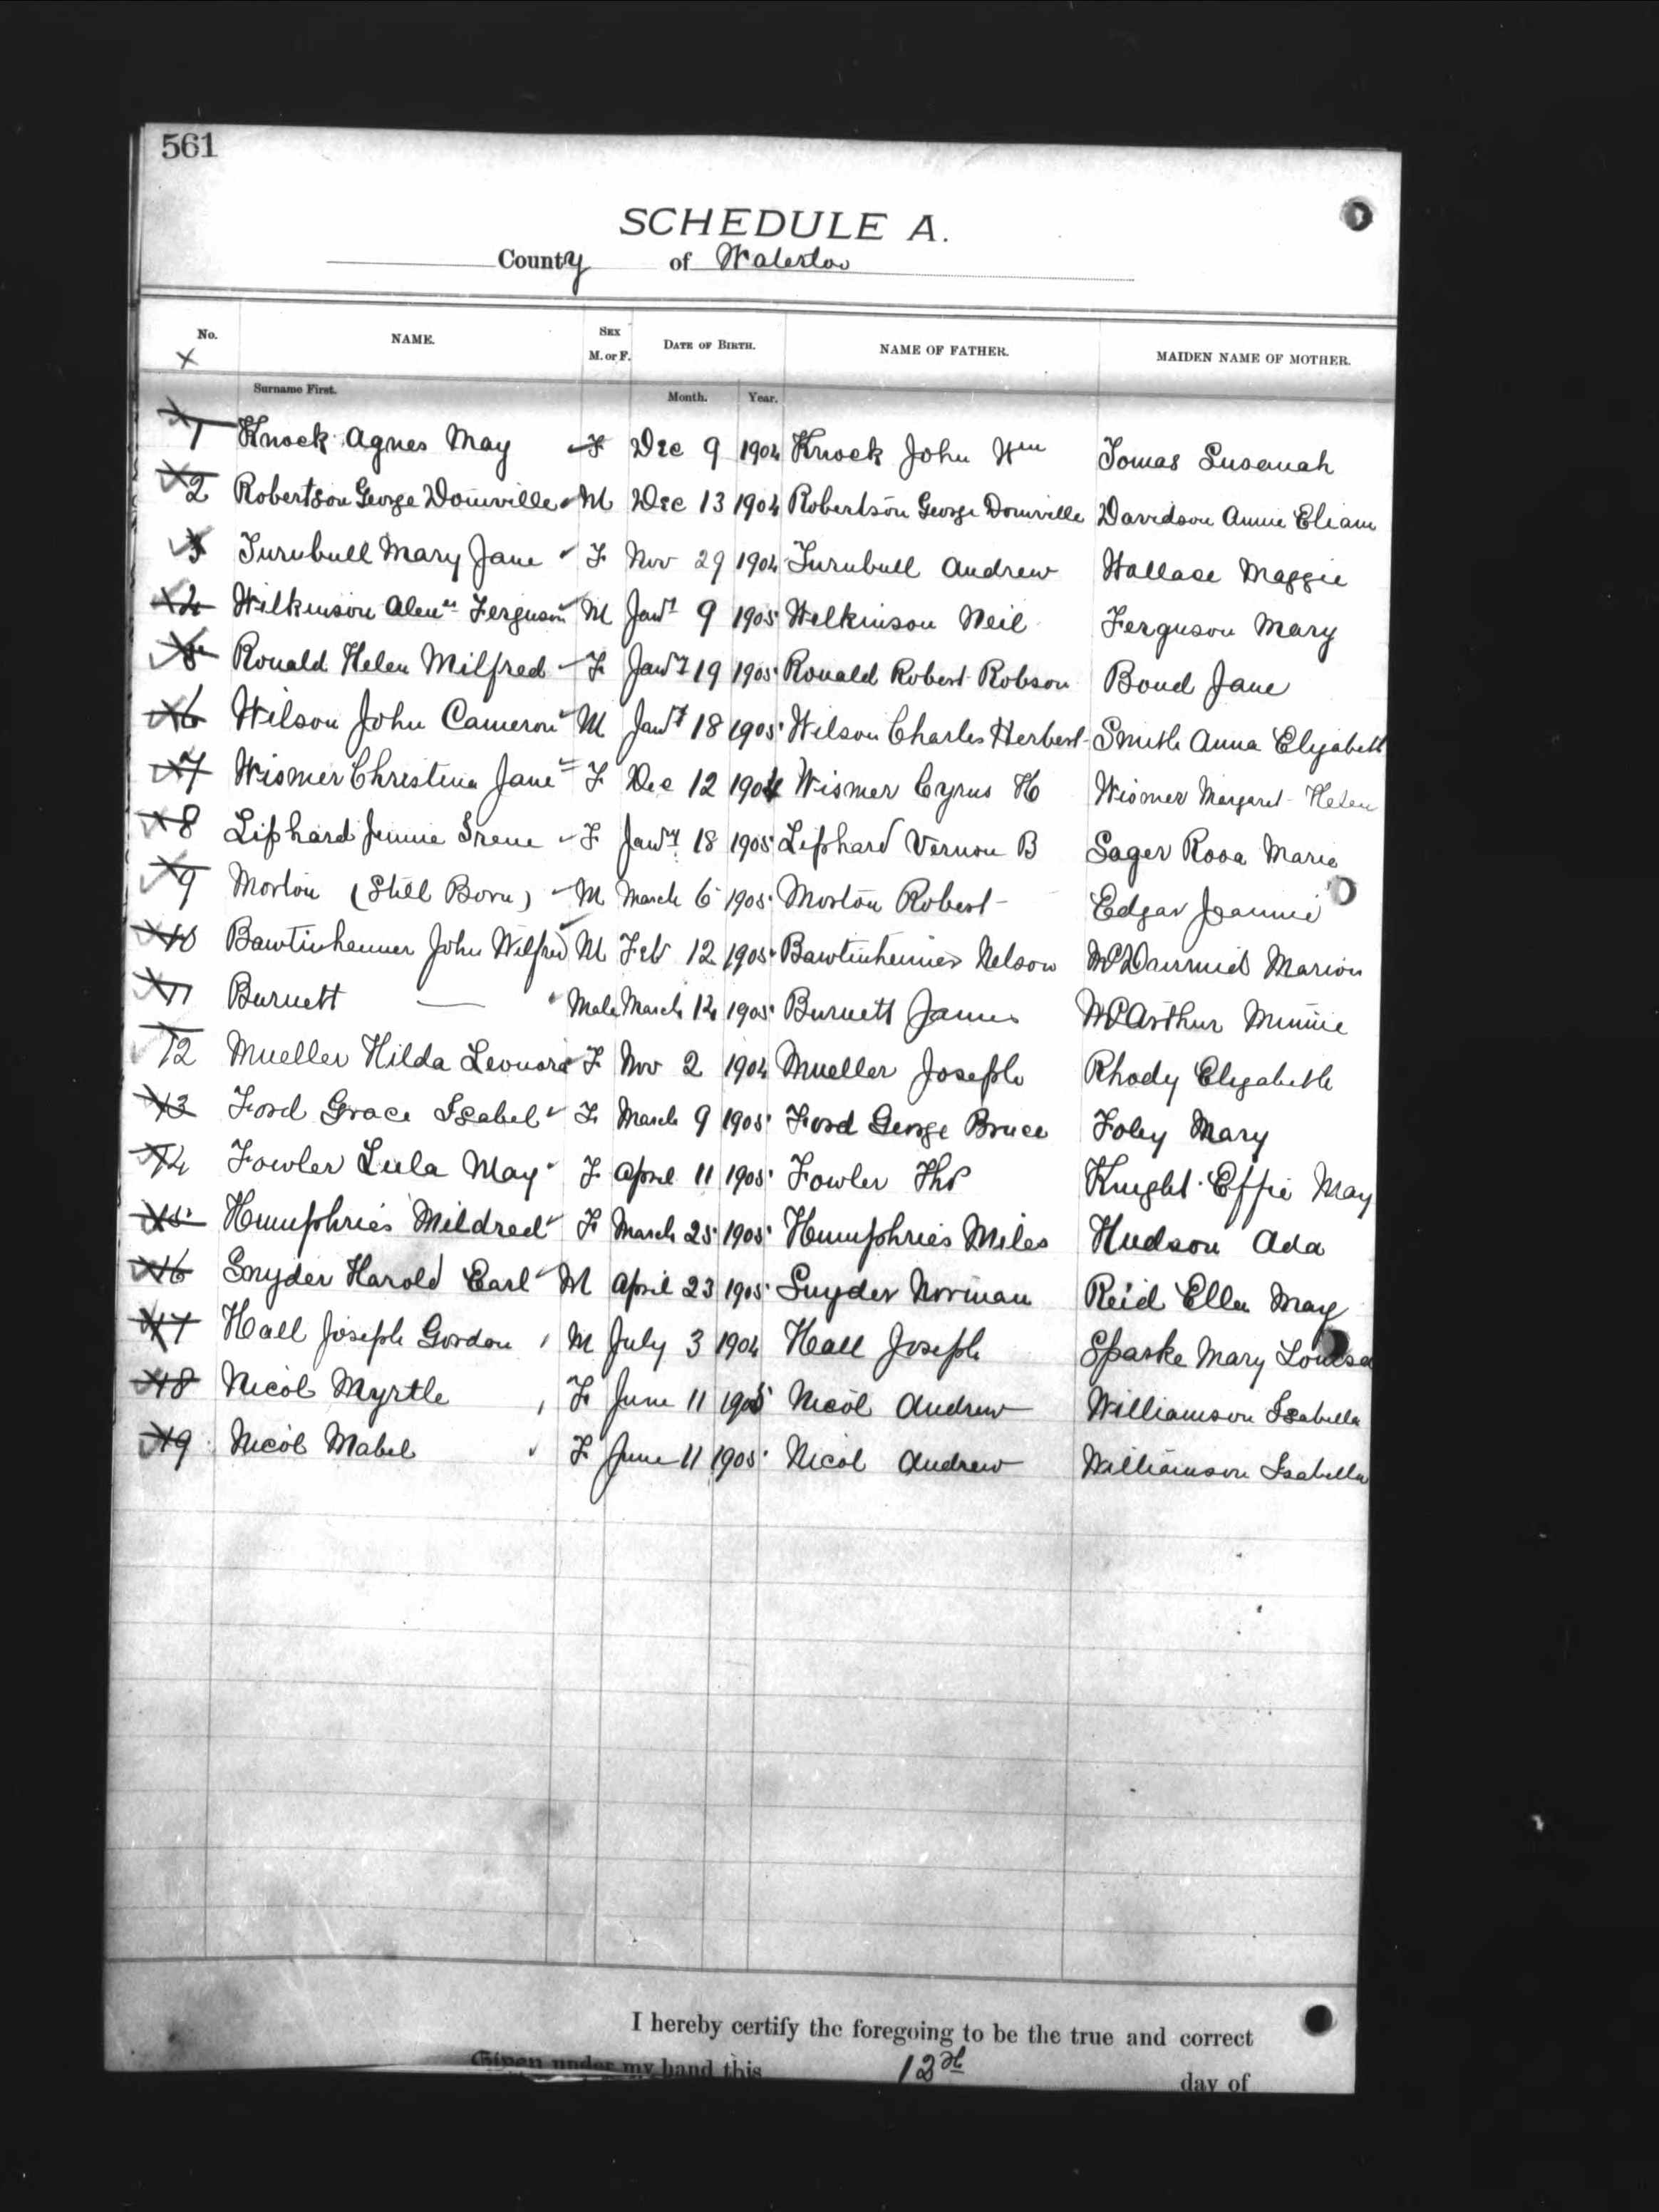 561
SCHEDULE A.
County of Waterloo
No. NAME. SEX M. or F. DATE OF BIRTH. NAME OF FATHER. MAIDEN NAME OF MOTHER.
X Surname First. Month. Year.
1 Knock Agnes May F Dec 9 1904 Knock John Wm Tomas Susanah
2 Robertson George Domville M Dec 13 1904 Robertson George Domville Davidson Annie
3 Turnbull Mary Jane F Nov 29 1904 Turnbull Andrew Wallace Maggie
4 Wilkinson Ferguson M Jany 9 1905 Wilkinson Neil Ferguson Mary
5 Ronald Helen Milfred F Jany 19 1905 Ronald Robert Robson Bond Jane
6 Wilson John Cameron M Jany 18 1905 Wilson Charles Herbert Smith Anna Elizabeth
7 Wismer Christina Jane F Dec 12 1904 Wismer Cyrus H Wismer Margaret Helen
8 Liphard Jennie Irene F Jany 18 1905 Liphard Vernon B Sager Rosa Marie
9 Morton (Still Born) M March 6 1905 Morton Robert Edgar Jeannie
10 Bawtinheimer John Wilfred M Feb 12 1905 Bawtinheimer Nelson McDairmid Marion
11 Burnett — Male March 14 1905 Burnett James McArthur Minnie
12 Mueller Hilda Leonora F Nov 2 1904 Mueller Joseph Rhody Elizabeth
13 Ford Grace Isabel F March 9 1905 Ford George Bruce Foley Mary
14 Fowler Lula May F April 11 1905 Fowler Thos Knight Effie May
15 Humphries Mildred F March 25 1905 Humphries Miles Hudson Ada
16 Snyder Harold Earl M April 23 1905 Snyder Norman Reid Ella May
17 Hall Joseph Gordon M July 3 1904 Hall Joseph Sparke Mary Louisa
18 Nicol Myrtle F June 11 1905 Nicol Andrew Williamson Isabella
19 Nicol Mabel F June 11 1905 Nicol Andrew Williamson Isabella
I hereby certify the foregoing to be the true and correct
Given under my hand this 12th day of